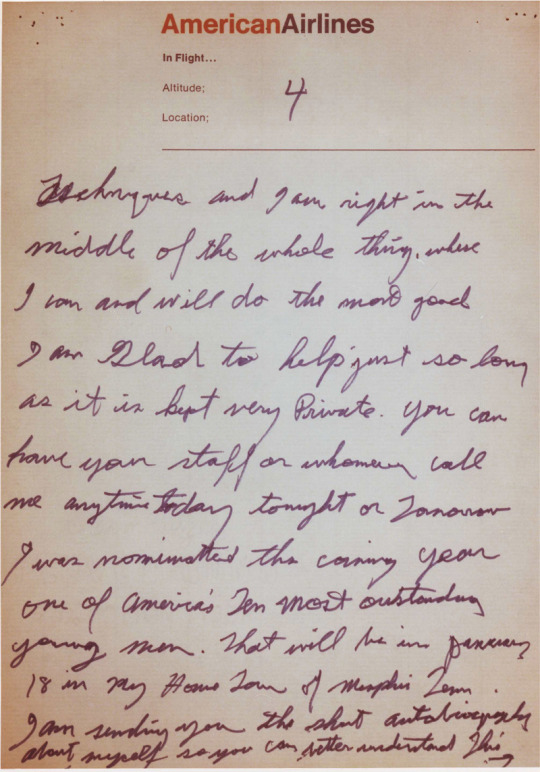 AmericanAirlines
In Flight...
Altitude;
4
Location;
Techniques and I am right in the
middle of the whole thing, where
I can and will do the most good
I am Glad to help just so long
as it is kept very Private. You can
have your staff or whomever call
me anytime today tonight or Tomorrow
I was nominated this coming year
one of America's Ten most outstanding
young men. That will be in January
18 in my Home Town of Memphis Tenn.
I am sending you the short autobiography
about myself so you can better understand This